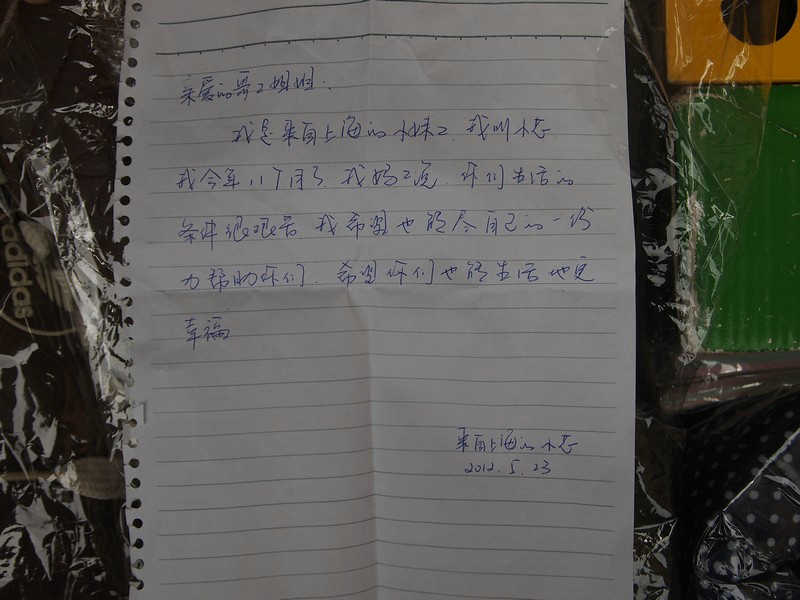 亲爱的哥哥姐姐:
我是来自上海的小妹妹,我叫小芯
我今年11个月了,我妈妈说,你们生活的
条件很艰苦,我希望也能尽自己的一份
力帮助你们,希望你们也能生活地更
幸福
来自上海的小芯
2012.5.23
adidas